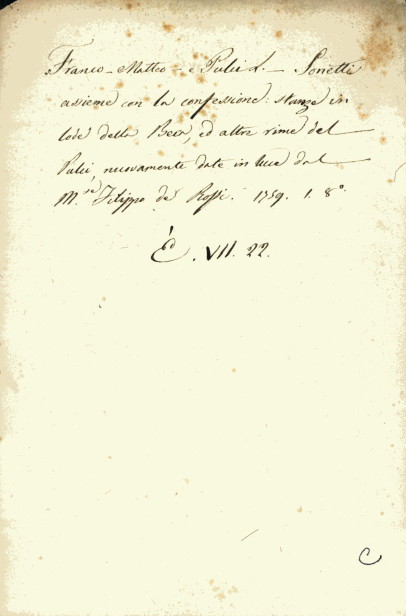 Franco - Matteo - e Pulci L. - Sonetti
assieme con la confessione: stanze in
lode della Beca, ed altre rime del
Pulci, nuovamente date in luce dal
M.se Filippo de' Rossi. 1759. 1. 8°.
È. VII. 22.
C